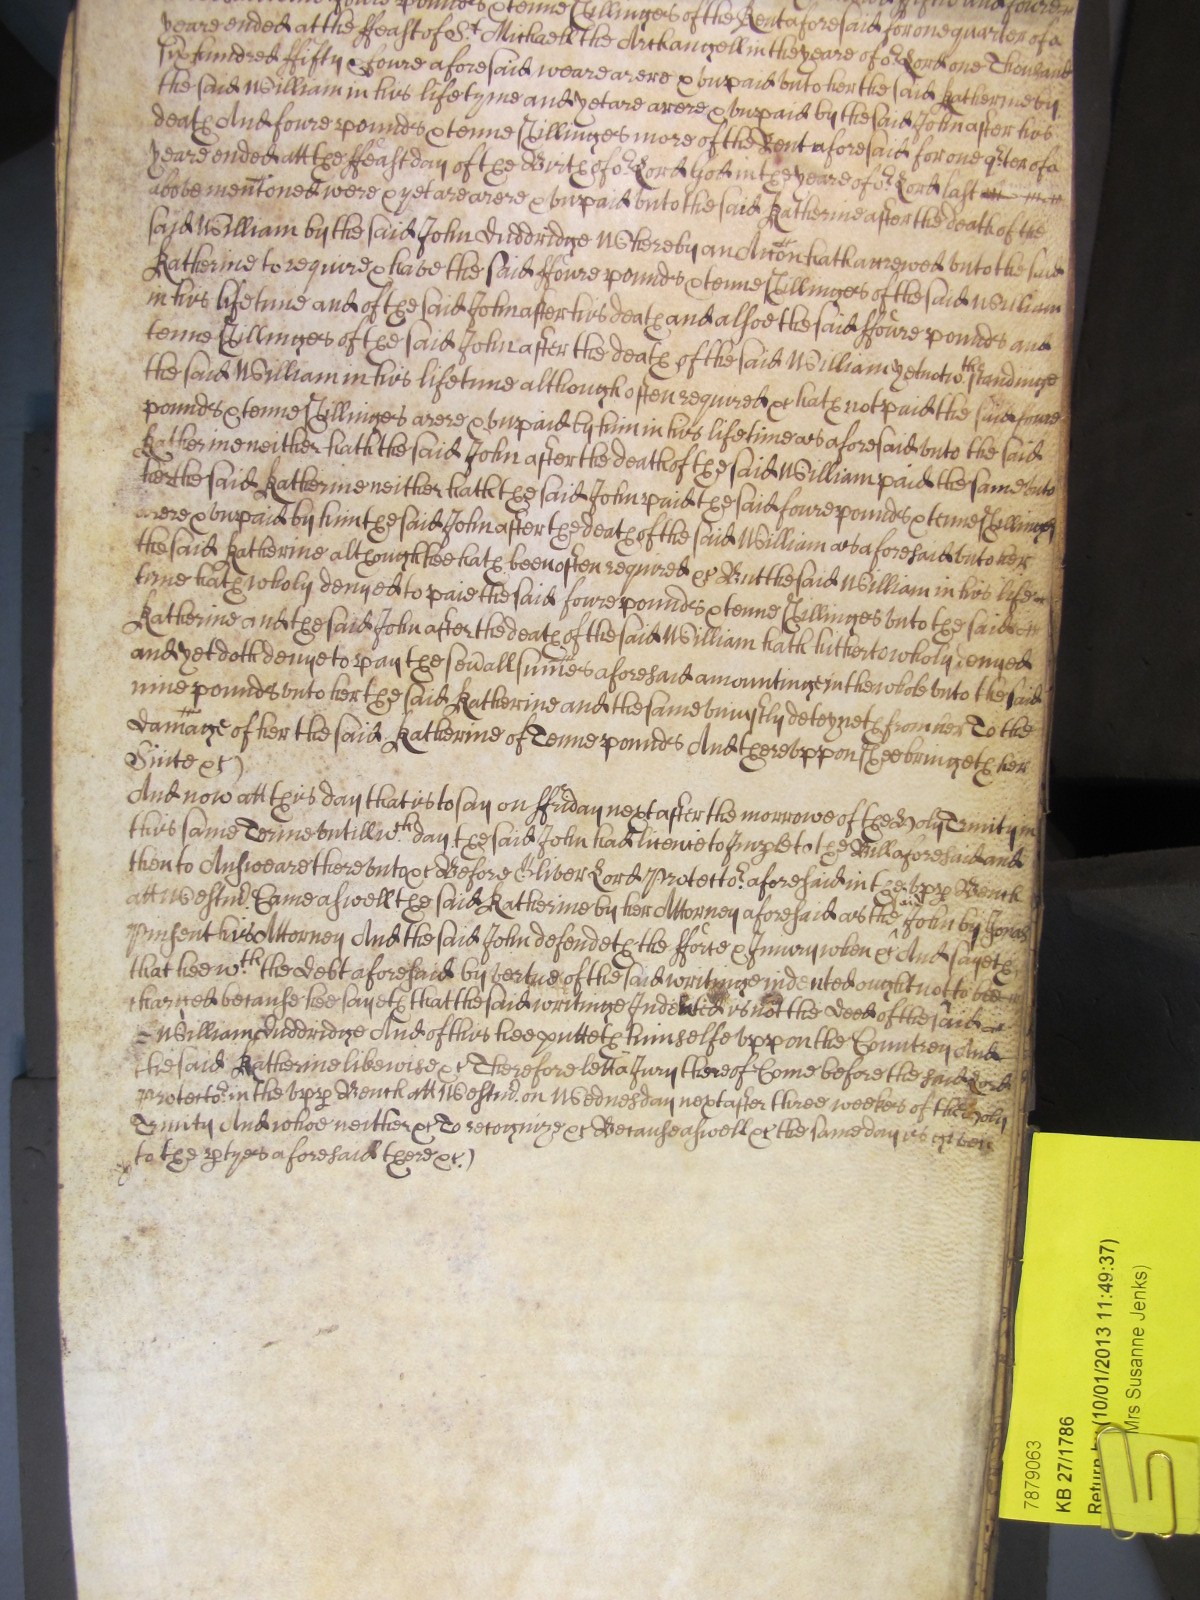 foure pounds & tenne Shillinges of the Rent aforesaid for one quarter of a
yeare ended at the ffeast of St Michaell the Archangell in the yeare of or Lord one Thousand
six hundred ffifty & foure aforesaid weare arere & vnpaid vnto her the said Katherine by
the said William in his life tyme and yet are arere & vnpaid by the said John after his
death And foure pounds & tenne Shillinges more of the Rent aforesaid for one qrter of a
yeare ended att the ffeast day of the Birth of or Lord God in the yeare of or Lord last
above mentoned were & yet are arere & vnpaid vnto the said Katherine after the death of the
said William by the said John Duddridge Whereby an Accon hath accrewed vnto the said
Katherine to require & have the said ffoure pounds & tenne Shillinges of the said William
in his life time and of the said John after his death and alsoe the said ffoure pounds and
tenne Shillinges of the said John after the death of the said William yet notwthstandinge
the said William in his life time although often required &c hath not paid the said foure
pounds & tenne Shillinges arere & vnpaid by him in his life time as aforesaid vnto the said
Katherine neither hath the said John after the death of the said William paid the same vnto
her the said Katherine neither hath the said John paid the said foure pounds & tenne Shillings
arere & vnpaid by him the said John after the death of the said William as aforesaid vnto her
the said Katherine although hee hath been often required &c But the said William in his life
time hath wholy denyed to paie the said foure pounds & tenne Shillinges vnto the said
Katherine and the said John after the death of the said William hath hitherto wholy denyed
and yet doth denye to pay the seuall summes aforesaid amountinge in the whole vnto the said
nine pounds vnto her the said Katherine and the same vniustly deteyneth from her To the
Damage of her the said Katherine of Tenne pounds And therevppon Shee bringeth her
Suite &c)
And now att this day that is to say on ffriday next after the morrowe of the Holy Trinity in
this same Terme vntill wch day the said John had licence to Imple to the Bill aforesaid and
then to Answeare therevnto &c Before Oliver Lord Protector aforesaid in the vpp Bench
att Westmr. Came aswell the said Katherine by her Attorney aforesaid as the said John by Jonas
Pinsent his Attorney And the said John defendeth the fforce & Iniury when &c And sayeth
that hee wth the debt aforesaid by vertue of the said writinge indented ought not to bee
charged because hee sayeth that the said writinge Indented is not the deed of the said
William Duddridge And of this hee putteth himselfe vppon the Countrey And
the said Katherine likewise &c Therefore lett a Jury thereof Come before the said Lord
Protector in the vpp Bench att Westmr. on Wednesday next after three weekes of the Holy
Trinity And whoe neither &c To recognize &c Because aswell &c the same day is given
to the ptyes aforesaid there &c)
7879063
KB 27/1786
Return by (10/01/2013 11:49:37)
Mrs Susanne Jenks)